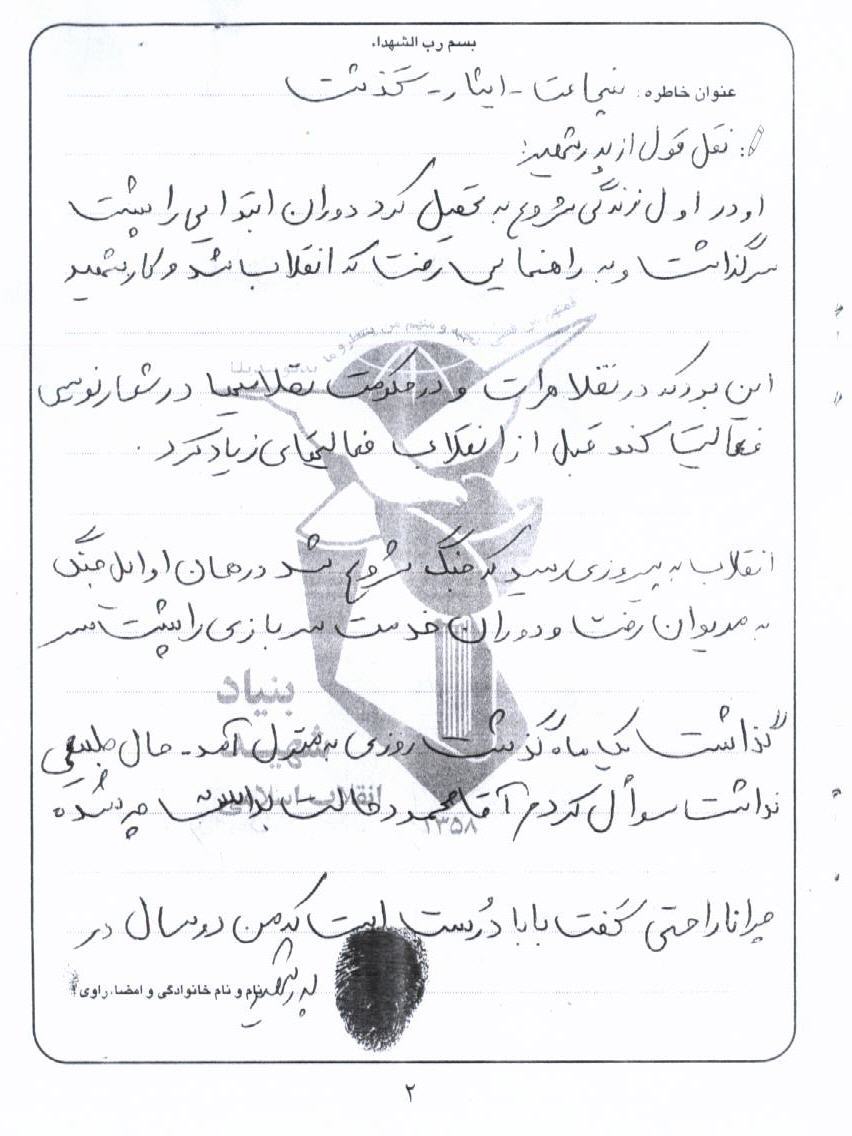 بسم رب الشهداء
عنوان خاطره: شجاعت - ایثار - گذشت
: نقل قول از پدر شهید:
او در اول زندگی شروع به تحصیل کرد دوران ابتدایی را پشت
سر گذاشت و به راهنمایی رفت که انقلاب شد و کار شهید
این بود که در تظاهرات و در حکومت نظامیها در شعار نویسی
فعالیت کند قبل از انقلاب فعالیتهای زیاد کرد.
انقلاب به پیروزی رسید که جنگ شروع شد در همان اوایل جنگ
به مریوان رفت و دوران خدمت سربازی را پشت سر
گذاشت یک ماه گذشت روزی به منزل آمد - حال طبیعی
نداشت سوأل کردم آقا محمود حالت چه شده
چرا ناراحتی گفت بابا درست است که من دو سال در
نام و نام خانوادگی و امضاء راوی:
پدر شهید
بنیاد
شهید
انقلاب اسلامی
۱۳۵۸
۲